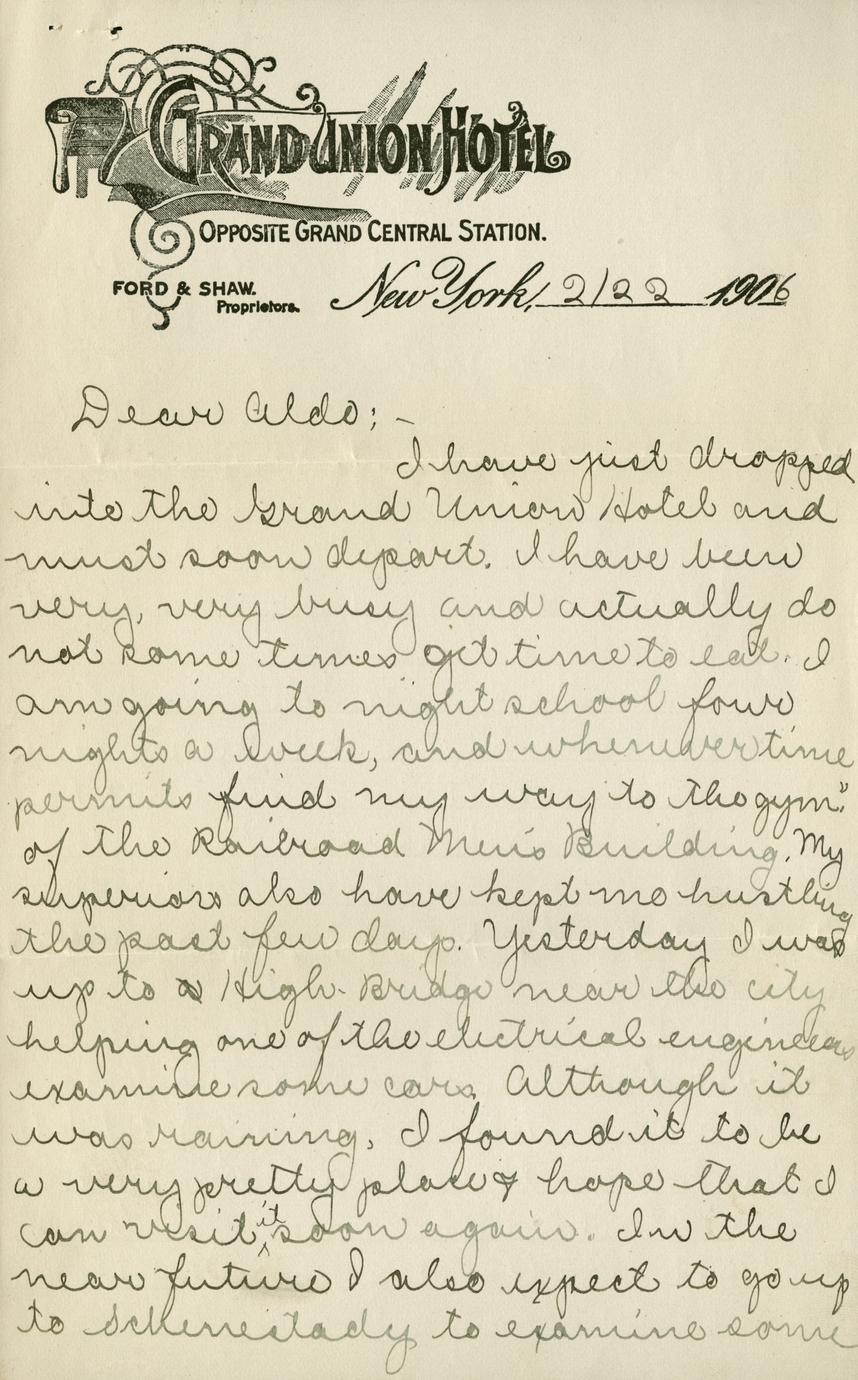 GRAND UNION HOTEL
OPPOSITE GRAND CENTRAL STATION.
FORD & SHAW.
Proprietors.
New York, 2/22 1906
Dear Aldo; –
I have just dropped
into the Grand Union Hotel and
must soon depart. I have been
very, very busy and actually do
not some times get time to eat. I
am going to night school four
nights a week, and whenever time
permits find my way to the "gym."
of the Railroad Men's Building. My
superiors also have kept me hustling
the past few days. Yesterday I was
up to High-Bridge near the city
helping one of the electrical engineers
examine some cars. Although it
was raining, I found it to be
a very pretty place & hope that I
can visit it soon again. In the
near future I also expect to go up
to Schenectady to examine some